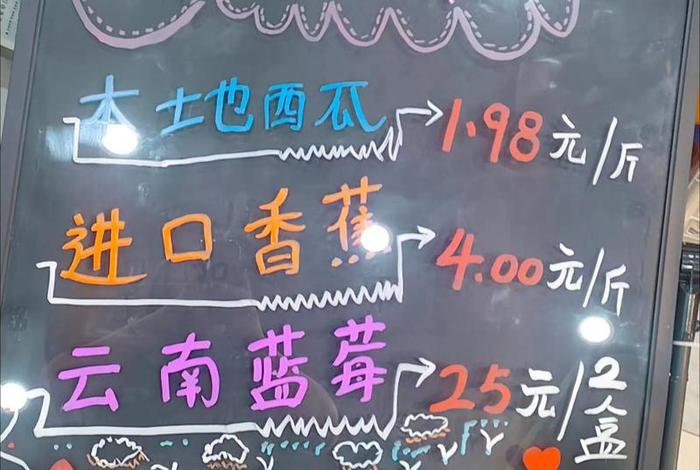 本土地西瓜 1.98元/斤
进口香蕉 4.00元/斤
云南蓝莓 25元/2个盒